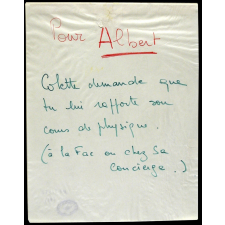 Pour Albert
Colette demande que
tu lui rapporte son
cours de physique.
(à la Fac ou chez sa
Concierge.)